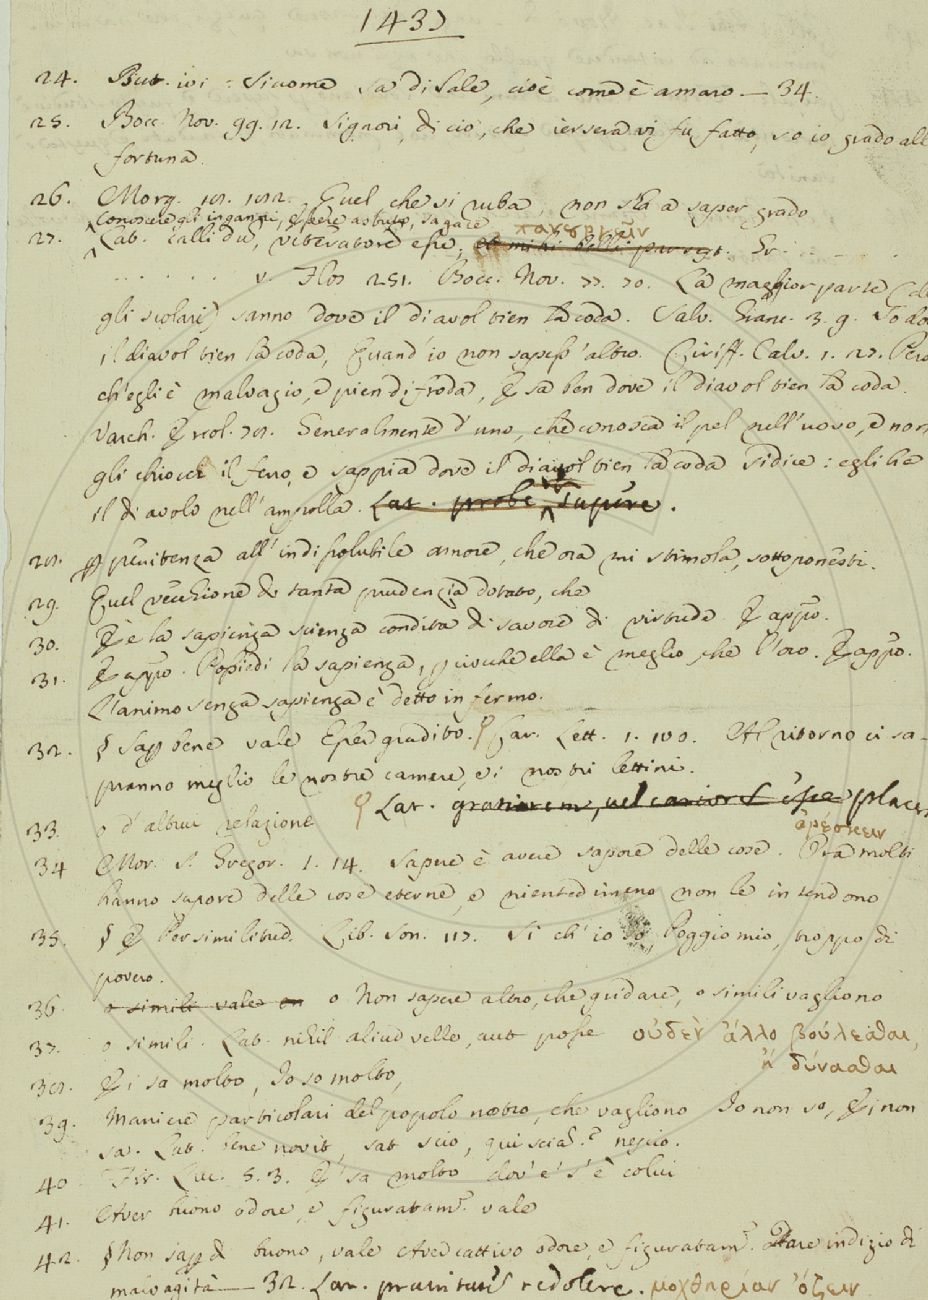 1437
24. But. ivi: Siccome sa di sale, cioè come è amaro. — 34.
25. Bocc. Nov. 99. 12. Signori, di ciò, che iersera vi fu fatto, so io grado all
fortuna.
26. Morg. Quel che si ruba, non s'ha a saper grado
Conoscere gl'inganni, essere astuto, sagace
27. Lat. callidũ, veteratorẽ esse, πανουργεῖν Gr.
. . . . . . v. Flos 251. Bocc. Nov. 77. 70. La maggior parte (de
gli scolari) sanno dove il diavol tien la coda. Salv. Granc. 3. 9. So do
il diavol tien la coda, Quand'io non sapess'altro. Ciriff. Calv. 1. 27. Però
ch'egli è malvagio, e pien di froda, E sa ben dove il diavol tien la coda.
Varch. Ercol. Generalmente d'uno, che conosca il pel nell'uovo, e non
gli chiocci il ferro, e sappia dove il diavol tien la coda si dice: egli ha
il diavolo nell'ampolla. Lat. probè sapere.
28. penitenza all'indissolubile amore, che ora mi stimola, sottoponesti.
29. Quel vecchione di tanta prudenzia dotato, che
30. E è la sapienza scienza condita di savore di virtude. E appr̃o.
31. E appr̃o. Possiedi la sapienza, perocchè ella è meglio che l'oro. E appr̃o.
L'animo senza sapienza è detto infermo.
32. § Saper bene vale Esser gradito. § Car. Lett. 1. 100. Al ritorno ci sa-
pranno meglio le nostre camere, e i nostri lettini.
§ Lat. gratiorem, vel cariorẽ esse placere
33. o d'altrui relazione ἀρέσκειν
34 Mor. S. Gregor. 1. 14. Sapere è avere sapore delle cose. Ma molti
hanno sapore delle cose eterne, e nientedimeno non le intendono
35. § E Per similitud. Lib. Son. 117. Si ch'io so, Poggio mio, troppo di
povero.
36. o simili vale o Non sapere altro, che guidare, o simili vagliono
37. o simili. Lat. nihil aliud velle, aut posse οὐδὲν ἄλλο βούλεσθαι,
ἢ δύνασθαι
38. E i sa molto, Io so molto,
39. Maniere particolari del popolo nostro, che vagliono Io non so, E i non
sa. Lat. bene novit, sat scio, qui sciam? nescio.
40 Fir. Luc. 5. 3. E' sa molto dov'e' s'è colui
41. Aver buono odore, e figuratam.e vale
42. § Non saper di buono, vale Aver cattivo odore, e figuratam.e Dare indizio di
malvagità — 32. Lat. redolere. μοχθηρίαν ὄζειν